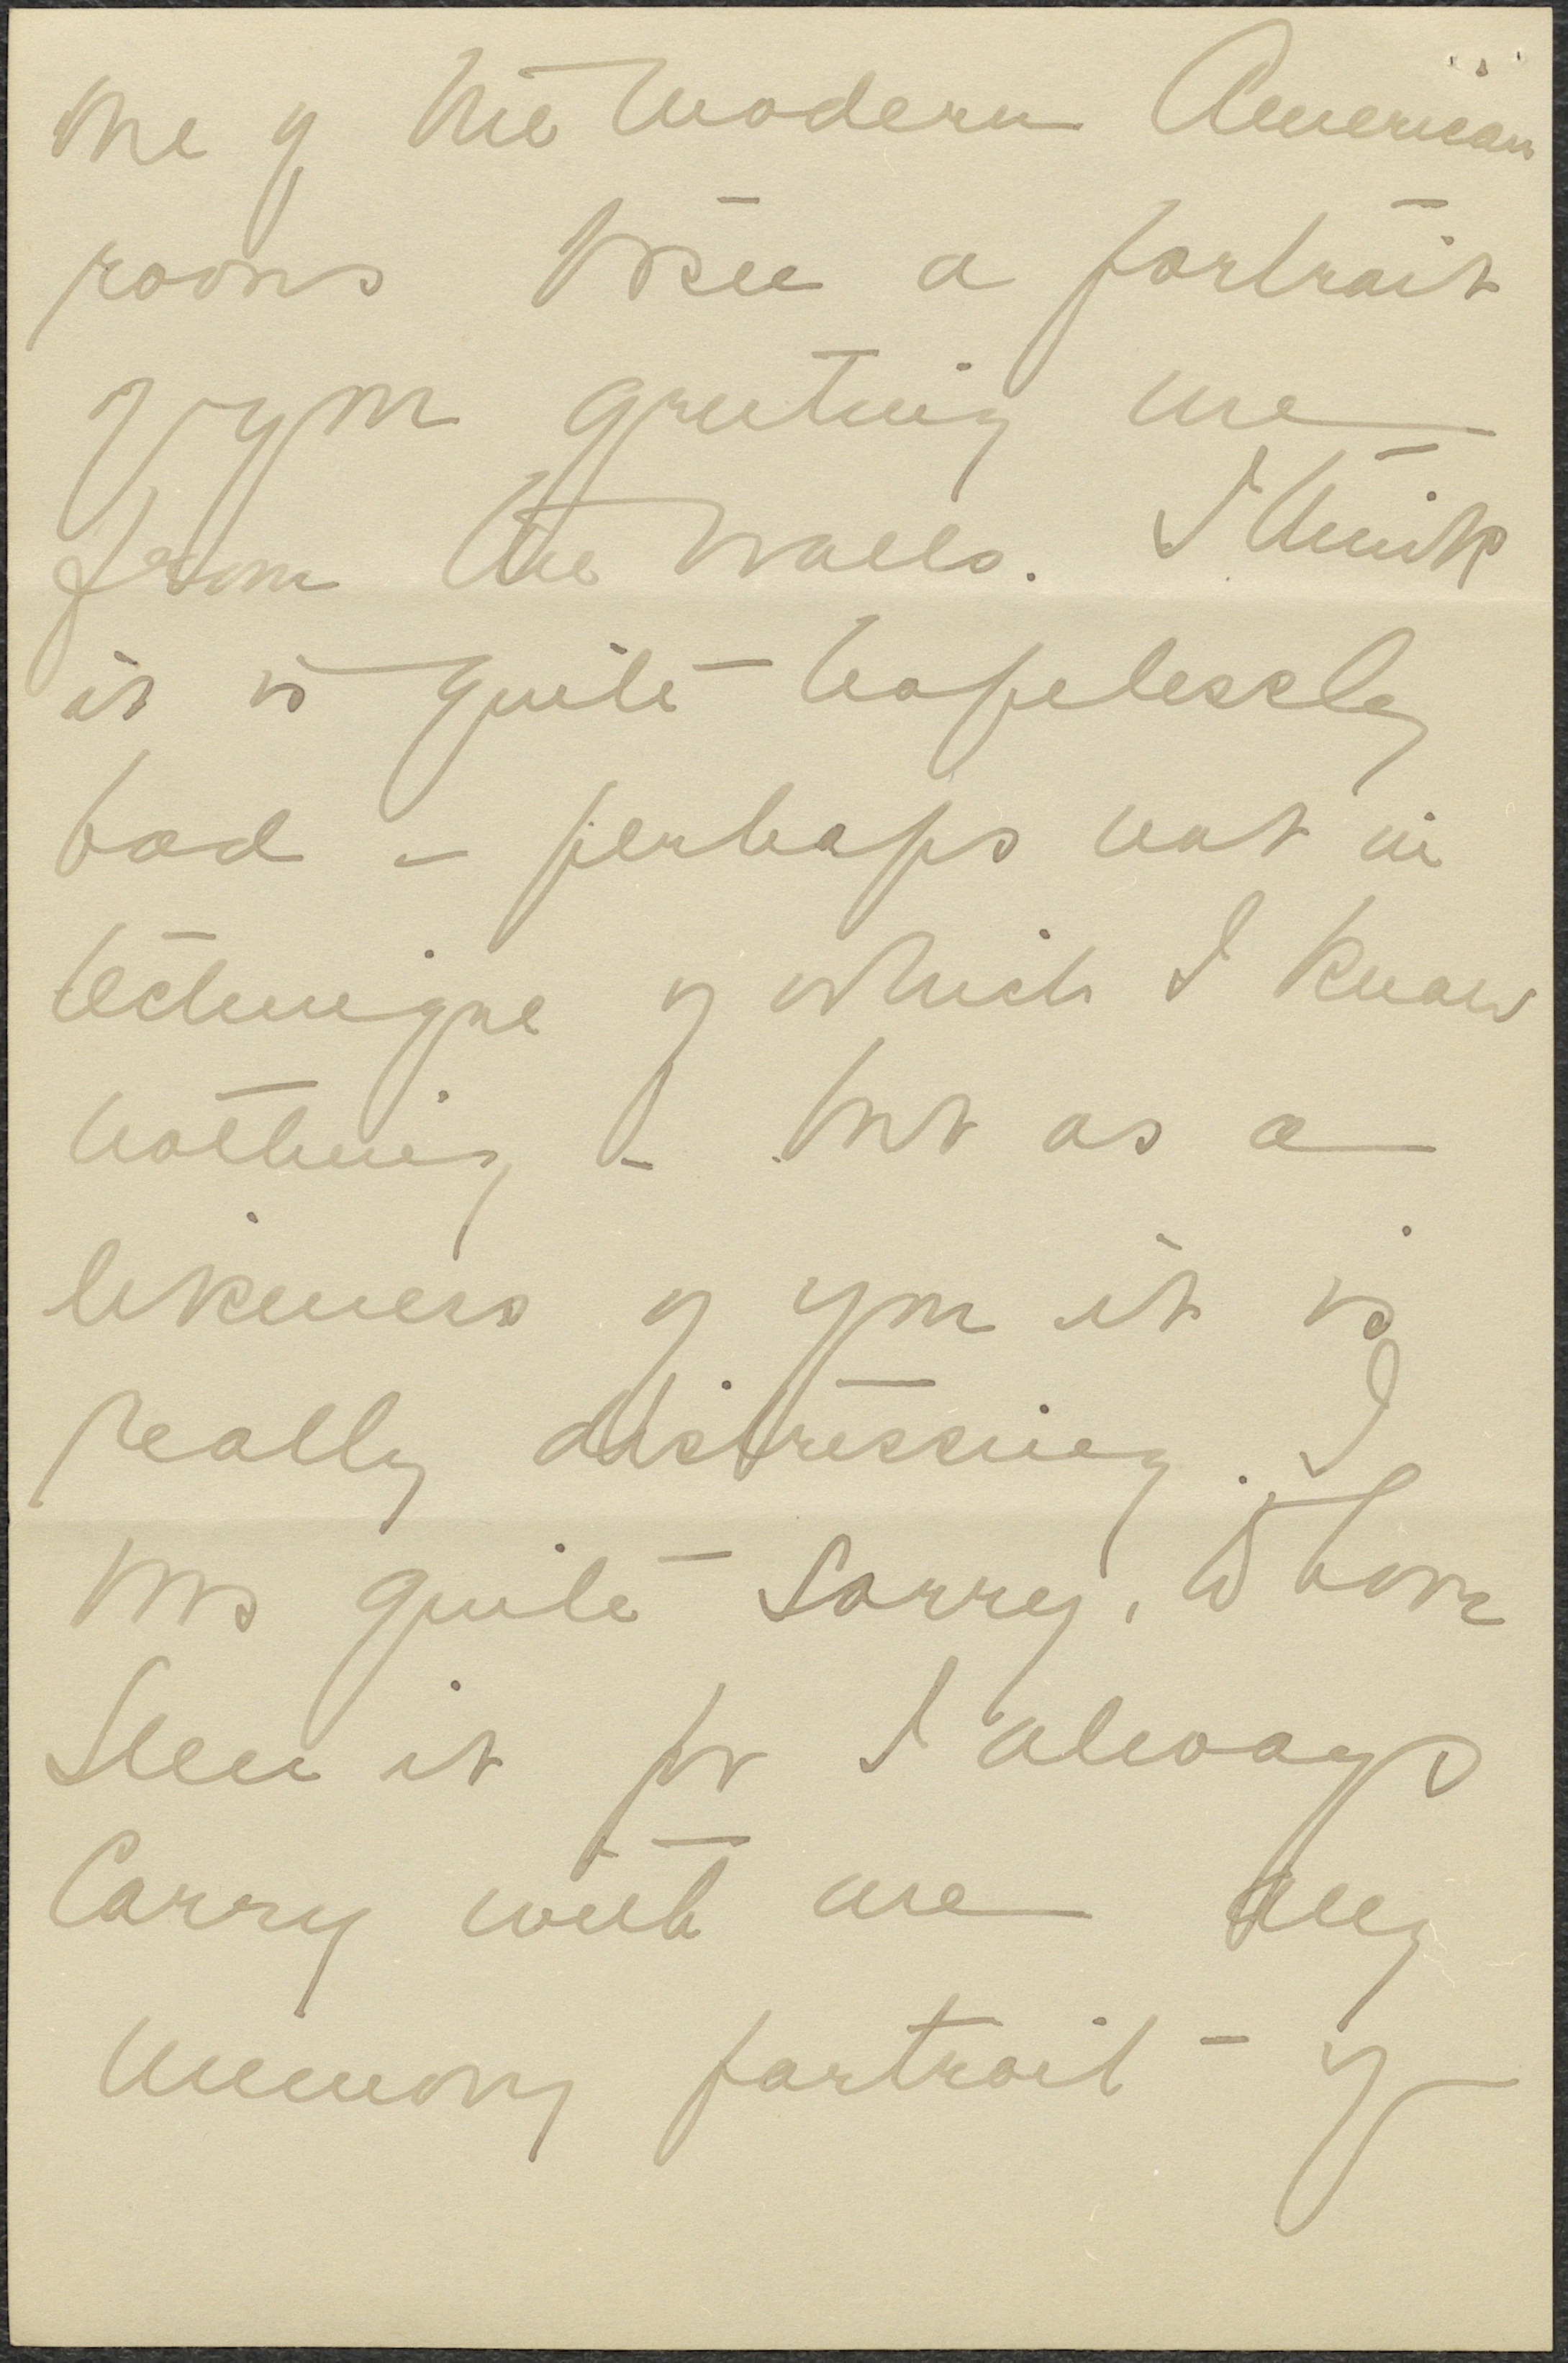 one of the modern American
rooms to see a portrait
of you greeting me
from the walls. I think
it is quite hopelessly
bad – perhaps not in
technique of which I know
nothing – but as a
likeness of you it is
really distressing. I
was quite sorry, to have
seen it for I always
carry with me my
memory portrait of